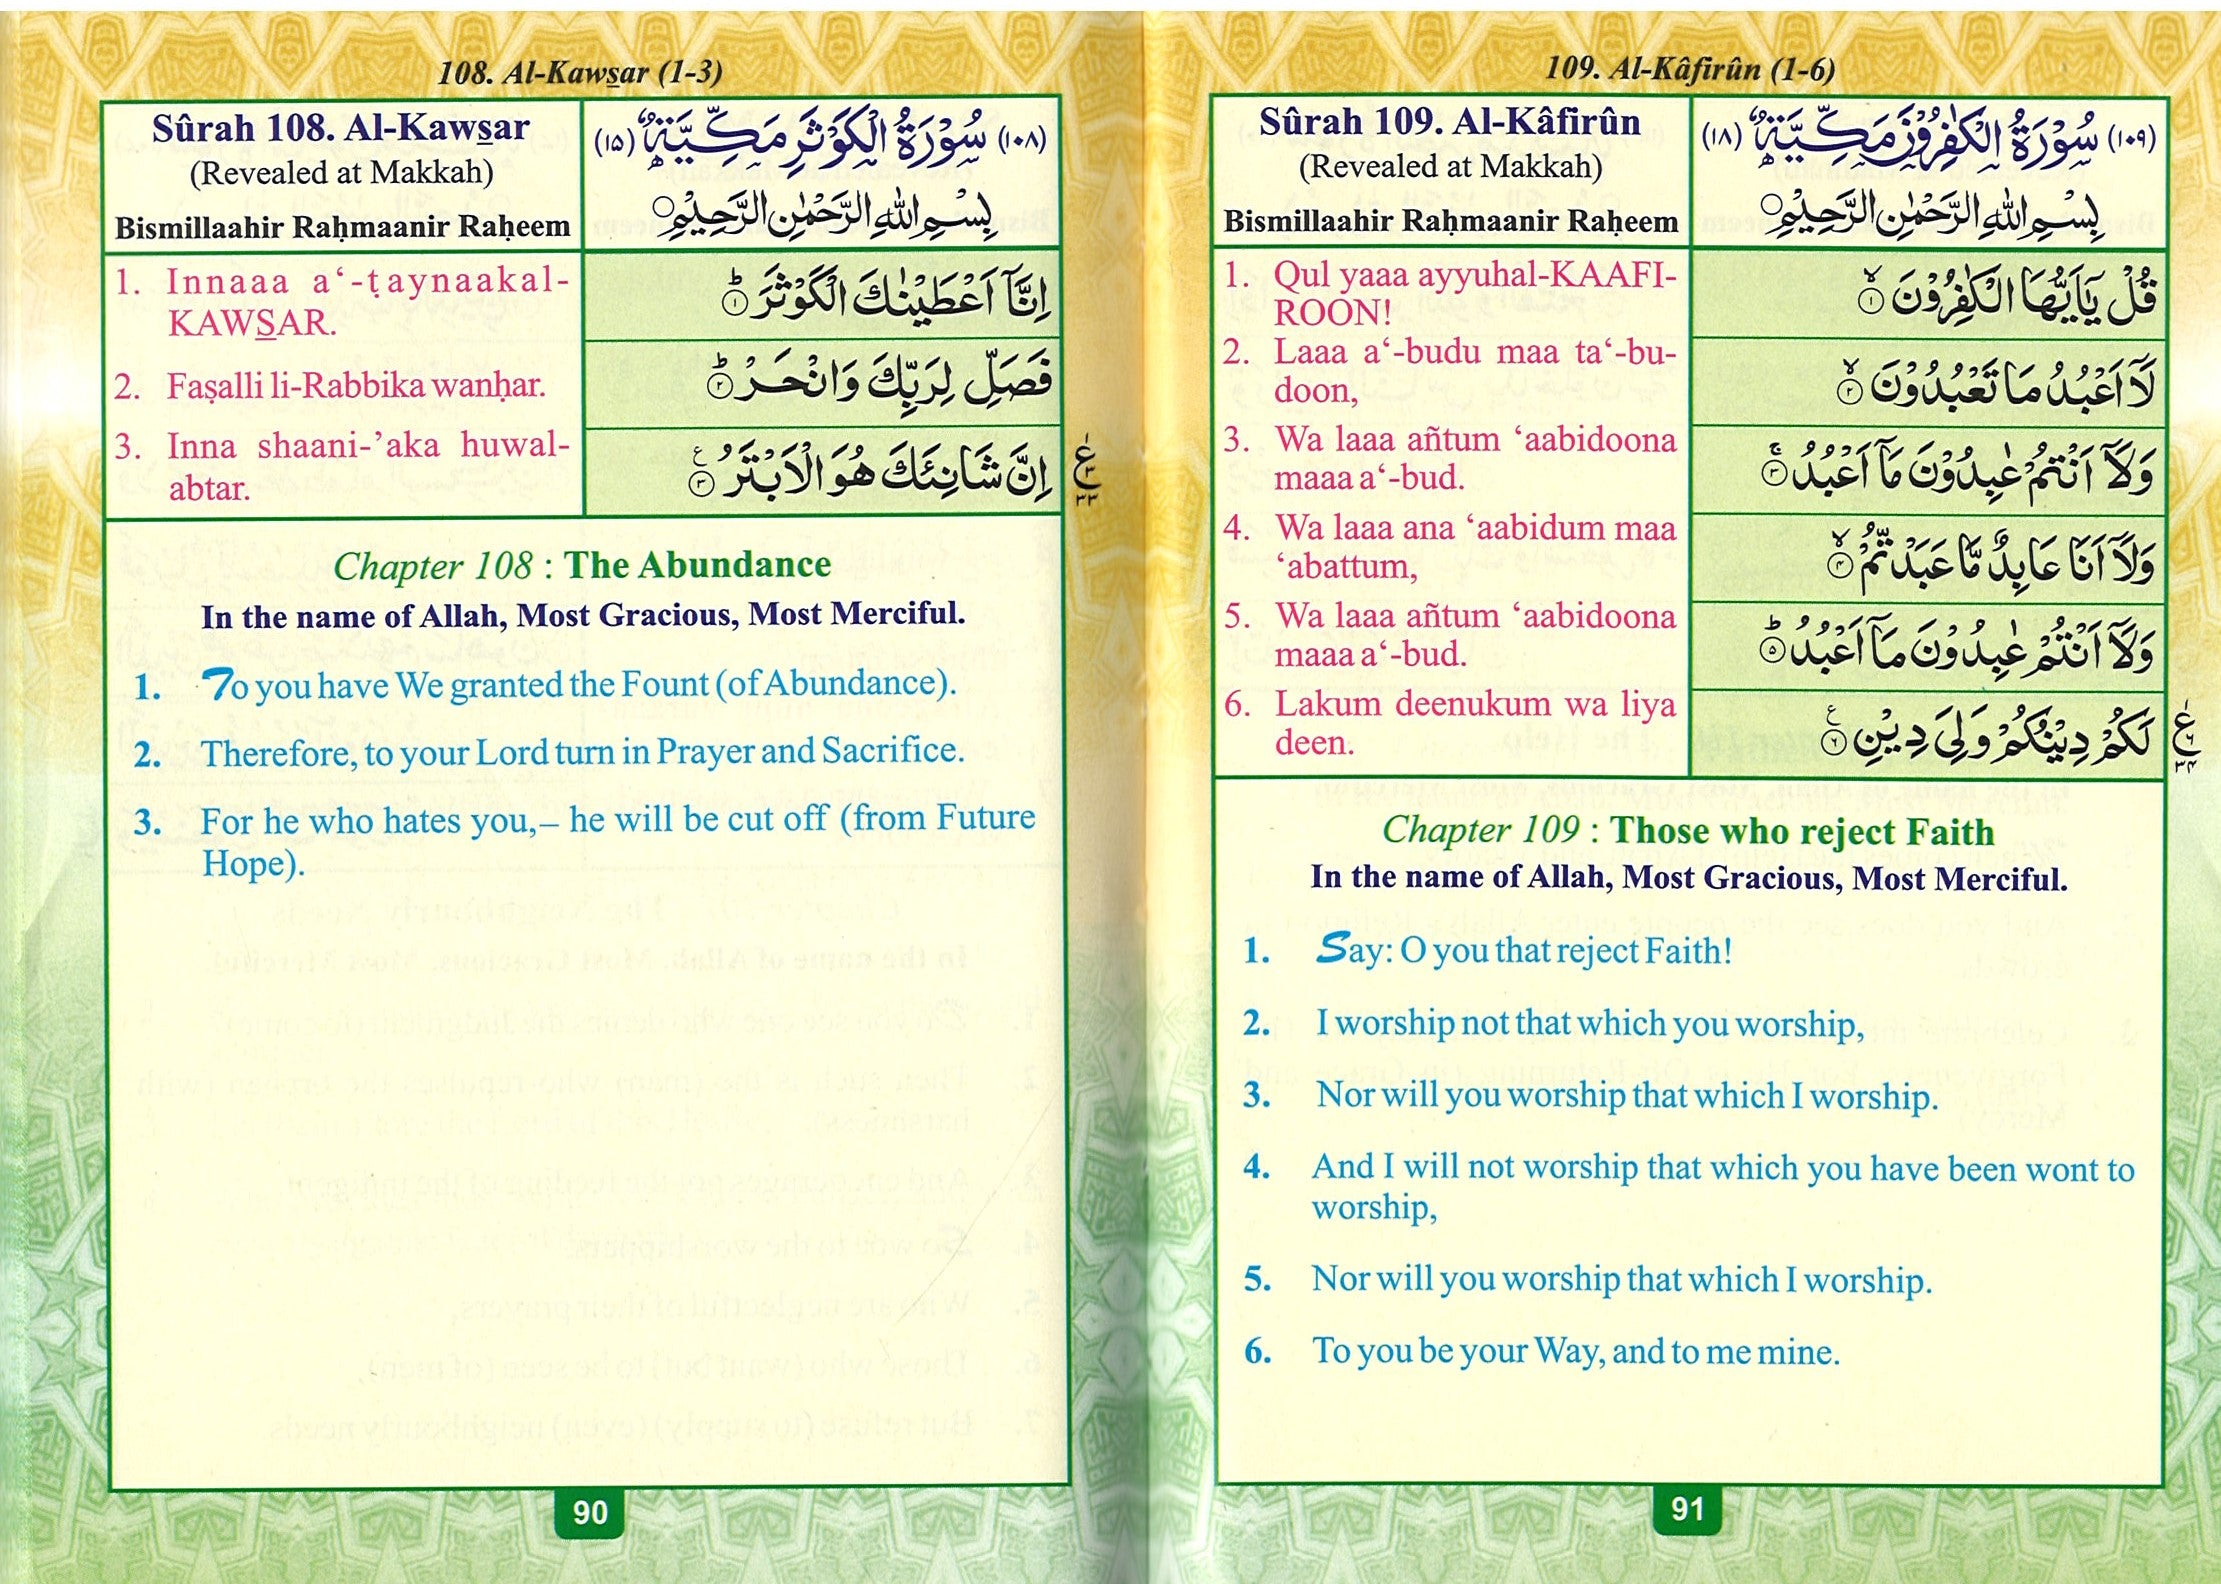 108. Al-Kawsar (1-3)
Sûrah 108. Al-Kawsar
(Revealed at Makkah)
Bismillaahir Raḥmaanir Raḥeem
(١٠٨) سُوْرَةُ الْكَوْثَرِ مَكِّيَّةٌ (١٥)
بِسْمِ اللهِ الرَّحْمٰنِ الرَّحِيْمِ
1. Innaaa a‘-ṭaynaakal-
KAWSAR.
اِنَّاۤ اَعْطَيْنٰكَ الْكَوْثَرَ ؕ ١
2. Faṣalli li-Rabbika wanḥar.
فَصَلِّ لِرَبِّكَ وَانْحَرْ ؕ ٢
3. Inna shaani-’aka huwal-
abtar.
اِنَّ شَانِئَكَ هُوَ الْاَبْتَرُ ٣ ع
ع ٣ ٣٣
Chapter 108 : The Abundance
In the name of Allah, Most Gracious, Most Merciful.
1. To you have We granted the Fount (of Abundance).
2. Therefore, to your Lord turn in Prayer and Sacrifice.
3. For he who hates you,– he will be cut off (from Future
Hope).
90
109. Al-Kâfirûn (1-6)
Sûrah 109. Al-Kâfirûn
(Revealed at Makkah)
Bismillaahir Raḥmaanir Raḥeem
(١٠٩) سُوْرَةُ الْكٰفِرُوْنَ مَكِّيَّةٌ (١٨)
بِسْمِ اللهِ الرَّحْمٰنِ الرَّحِيْمِ
1. Qul yaaa ayyuhal-KAAFI-
ROON!
قُلْ يٰۤاَيُّهَا الْكٰفِرُوْنَ ۙ ١
2. Laaa a‘-budu maa ta‘-bu-
doon,
لَاۤ اَعْبُدُ مَا تَعْبُدُوْنَ ۙ ٢
3. Wa laaa añtum ‘aabidoona
maaa a‘-bud.
وَلَاۤ اَنْتُمْ عٰبِدُوْنَ مَاۤ اَعْبُدُ ۚ ٣
4. Wa laaa ana ‘aabidum maa
‘abattum,
وَلَاۤ اَنَا عَابِدٌ مَّا عَبَدْتُّمْ ۙ ٤
5. Wa laaa añtum ‘aabidoona
maaa a‘-bud.
وَلَاۤ اَنْتُمْ عٰبِدُوْنَ مَاۤ اَعْبُدُ ؕ ٥
6. Lakum deenukum wa liya
deen.
لَكُمْ دِيْنُكُمْ وَلِيَ دِيْنِ ٦ ع
ع ٦ ٣٤
Chapter 109 : Those who reject Faith
In the name of Allah, Most Gracious, Most Merciful.
1. Say: O you that reject Faith!
2. I worship not that which you worship,
3. Nor will you worship that which I worship.
4. And I will not worship that which you have been wont to
worship,
5. Nor will you worship that which I worship.
6. To you be your Way, and to me mine.
91